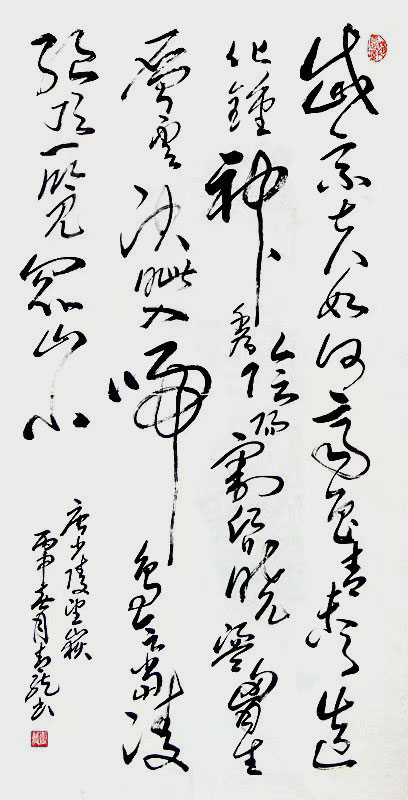 岱宗夫如何齊魯青未了造
化鍾神秀陰陽割昏曉盪胸生
層雲決眥入歸鳥會當凌
絕頂一覽眾山小
唐少陵望嶽
丙申春月书